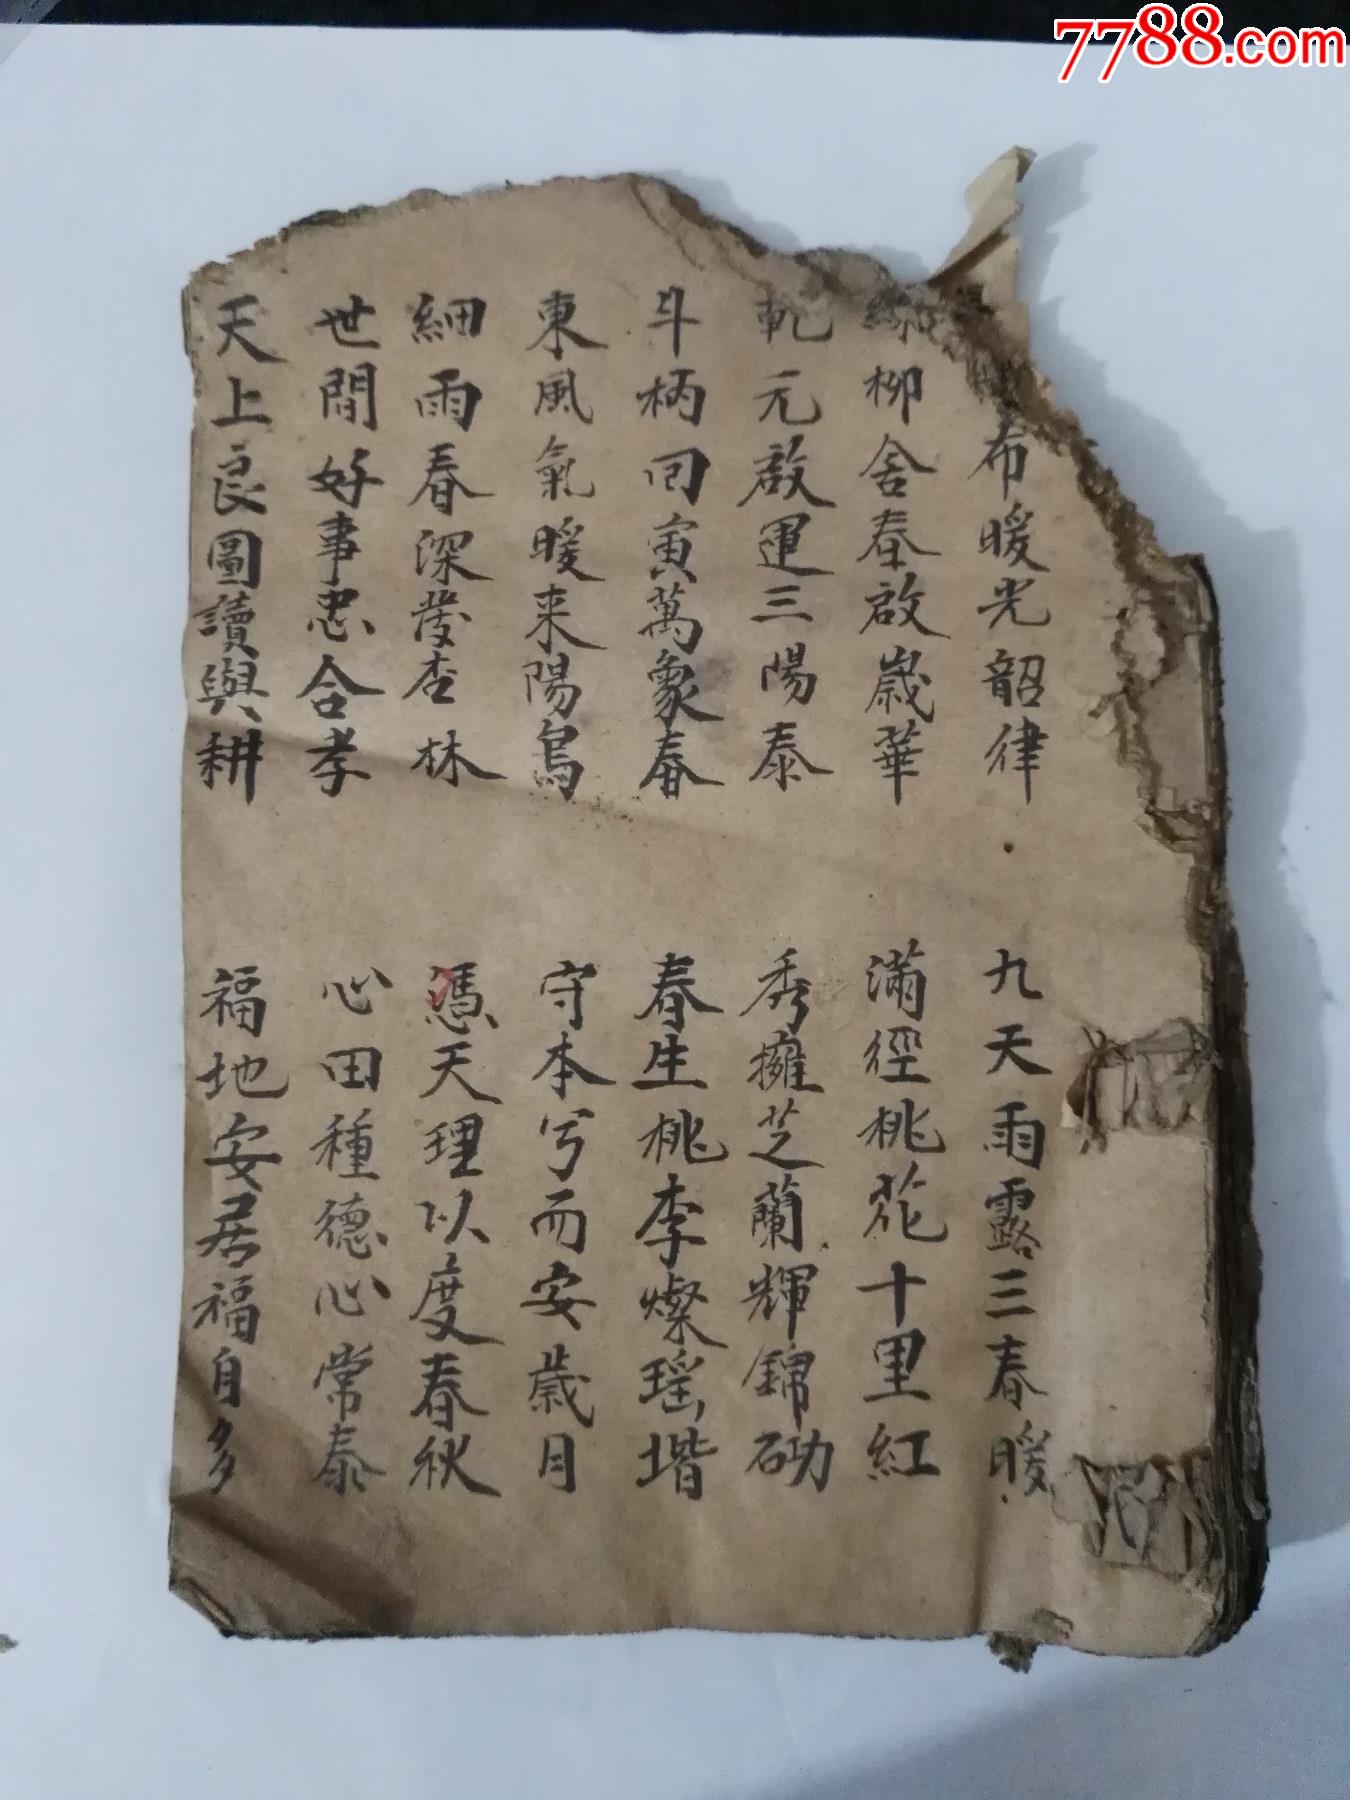 7788.com
布暖光韶律
柳舍春啟歲華
乾元啟運三陽泰
斗柄回寅萬象春
東風氣暖来陽鳥
細雨春深發杏林
世間好事忠合孝
天上良圖讀與耕
九天雨露三春暖
滿徑桃花十里紅
秀擁芝蘭輝錦砌
春生桃李燦瑤堦
守本分而安歲月
憑天理以度春秋
心田種德心常泰
福地安居福自多